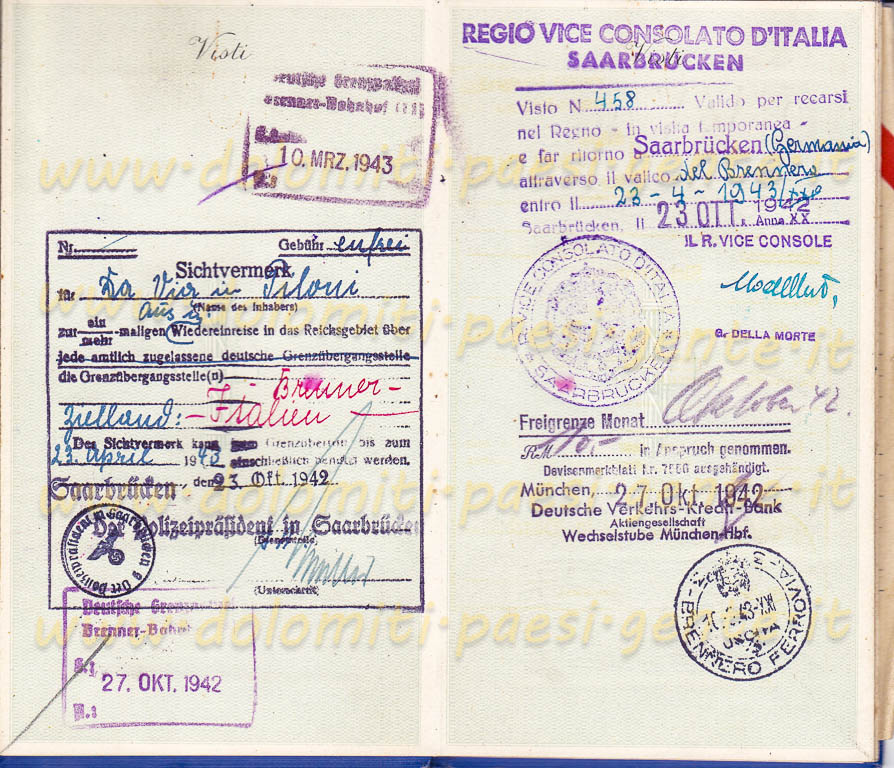 Visti
Deutsche Grenzpolizei
Brenner-Bahnhof
10. MRZ. 1943
Nr. Gebühr enfrei
Sichtvermerk
für Da Via in Piloni
(Name des Inhabers)
aus
zur ein/mehr-maligen Wiedereinreise in das Reichsgebiet über
jede amtlich zugelassene deutsche Grenzübergangsstelle
die Grenzübergangsstelle(n) Brenner-
Zielland: - Italien
Der Sichtvermerk kann Grenzübertritt bis zum
23. April 1943 einschließlich benutzt werden.
Saarbrücken, den 23. Okt. 1942
Der Polizeipräsident in Saarbrücken
(Dienststelle)
(Unterschrift)
Deutsche Grenzpolizei
Brenner-Bahnhof
27. OKT. 1942
Visti
REGIO VICE CONSOLATO D'ITALIA
SAARBRÜCKEN
Visto N. 458 Valido per recarsi
nel Regno - in visita temporanea -
e far ritorno a Saarbrücken (Germania)
attraverso il valico del Brennero
entro il 23-4-1943/XXI
Saarbrücken, li 23 OTT. 1942 Anno XX
IL R. VICE CONSOLE
G. DELLA MORTE
R. VICE CONSOLATO D'ITALIA
SAARBRÜCKEN
Freigrenze Monat Oktober 42.
RM 10.- in Anspruch genommen.
Devisenmerkblatt Nr. 7860 ausgehändigt.
München, 27. Okt. 1942
Deutsche Verkehrs-Kredit-Bank
Aktiengesellschaft
Wechselstube München-Hbf.
BRENNERO FERROVIA
USCITA
www.dolomiti-paesi-gente.it
www.dolomiti-paesi-gente.it
www.dolomiti-paesi-gente.it
www.dolomiti-paesi-gente.it